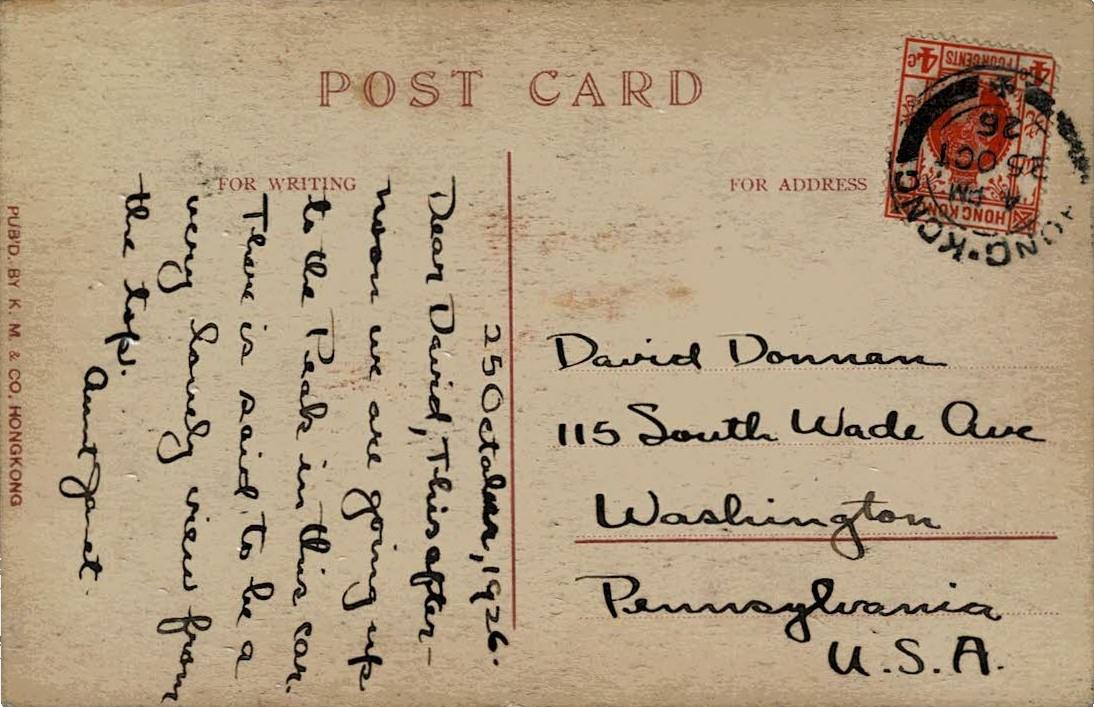 POST CARD
FOR WRITING
FOR ADDRESS
25 October, 1926.
Dear David, This after-
noon we are going up
to the Peak in this car.
There is said to be a
very lovely view from
the top.
Aunt Janet.
David Donnan
115 South Wade Ave
Washington
Pennsylvania
U.S.A.
PUB'D. BY K. M. & CO, HONGKONG
4c FOUR CENTS 4c
HONGKONG
HONG·KONG
PM
25 OCT
26